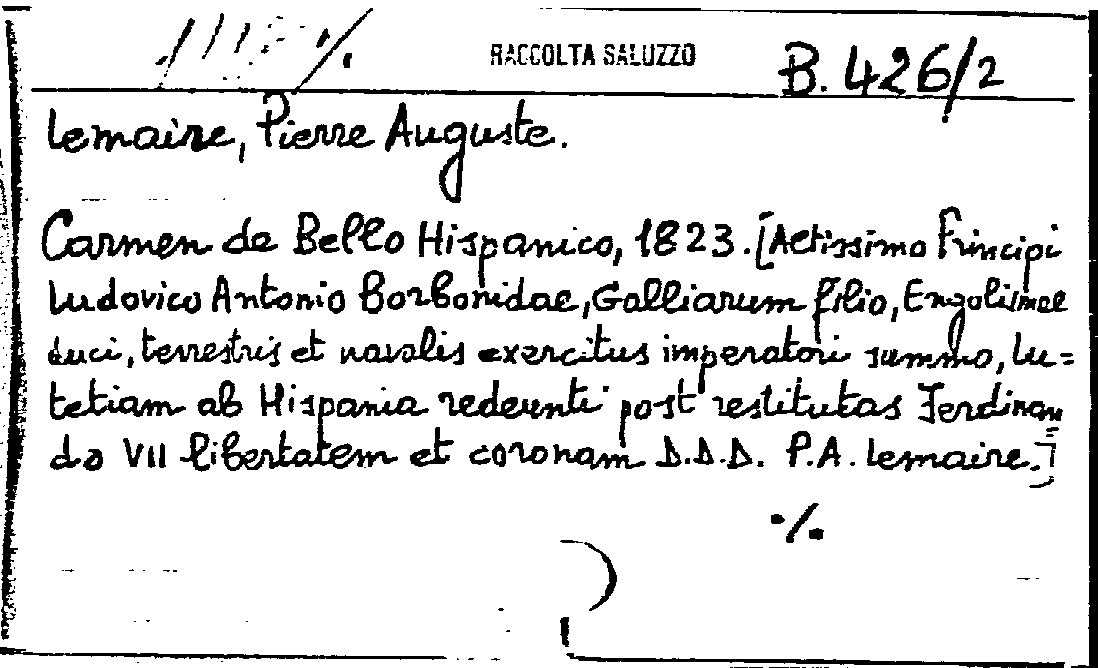 RACCOLTA SALUZZO B. 426/2
Lemaire, Pierre Auguste.
Carmen de Bello Hispanico, 1823. [Altissimo Principi
Ludovico Antonio Borbonidae, Galliarum filio, Engolismae
duci, terrestris et navalis exercitus imperatori summo, Lu=
tetiam ab Hispania redeunti post restitutas Ferdinan
do VII libertatem et coronam D.D.D. P.A. Lemaire.]
·/.